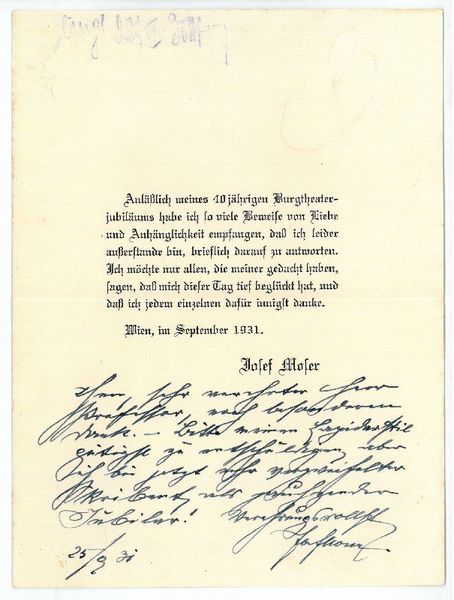 Anläßlich meines 40 jährigen Burgtheater-
jubiläums habe ich so viele Beweise von Liebe
und Anhänglichkeit empfangen, daß ich leider
außerstande bin, brieflich darauf zu antworten.
Ich möchte nur allen, die meiner gedacht haben,
sagen, daß mich dieser Tag tief beglückt hat, und
daß ich jedem einzelnen dafür innigst danke.
Wien, im September 1931.
Josef Moser
Ihnen, sehr verehrter Herr
Professor, noch besonderen
Dank. – Bitte meinen Lapidarstil
gütigst zu entschuldigen, aber
ich bin jetzt mehr verzweifelter
Skribent als jauchzender
Jubilar! Verehrungsvollst
25/9 31